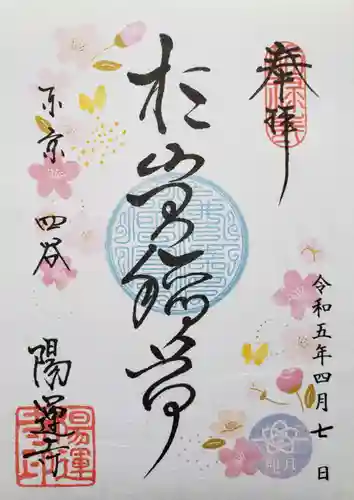 奉拝
令和五年四月七日
於岩稲荷
東京 四谷
陽運寺
陽運
寺印
卯月